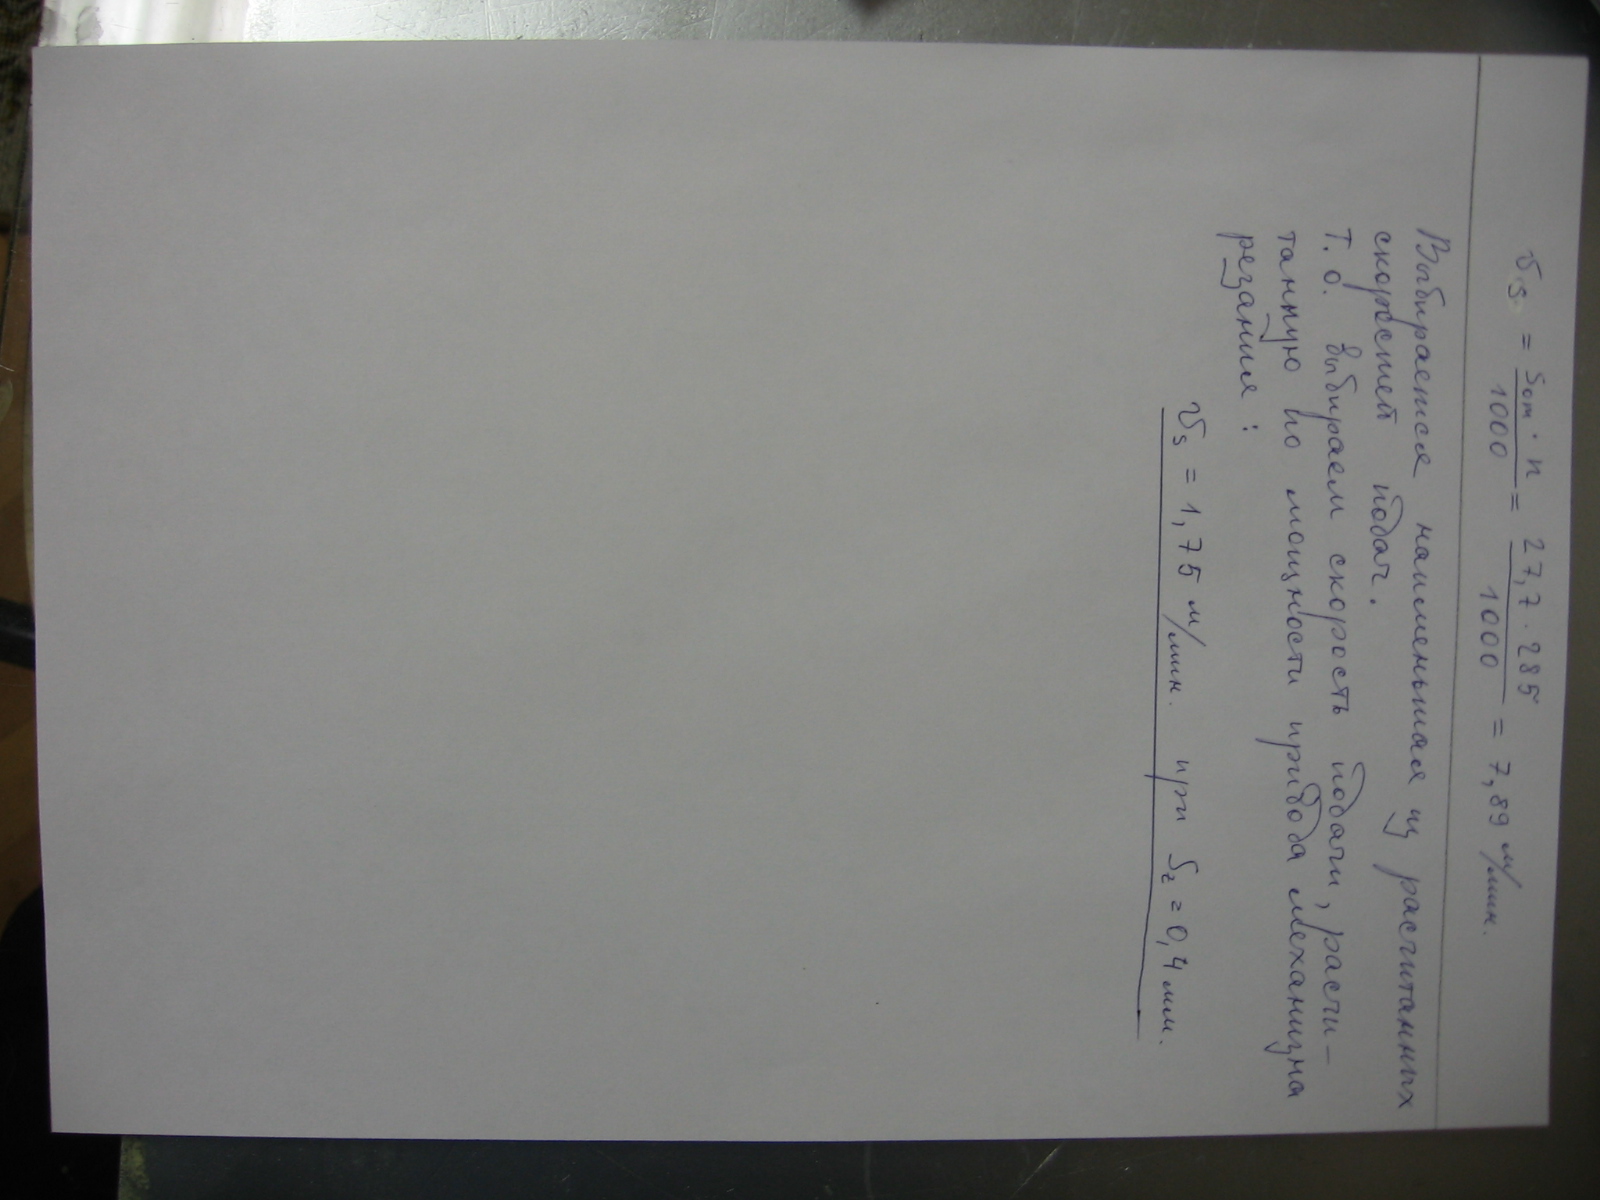 𝑣s = Sот · n / 1000 = 27,7 · 285 / 1000 = 7,89 м/мин.
Выбирается наименьшая из расчитанных
скоростей подач.
Т. о. выбираем скорость подачи, расчи-
танную по мощности привода механизма
резания :
𝑣s = 1,75 м/мин. при Sz = 0,4 мм.